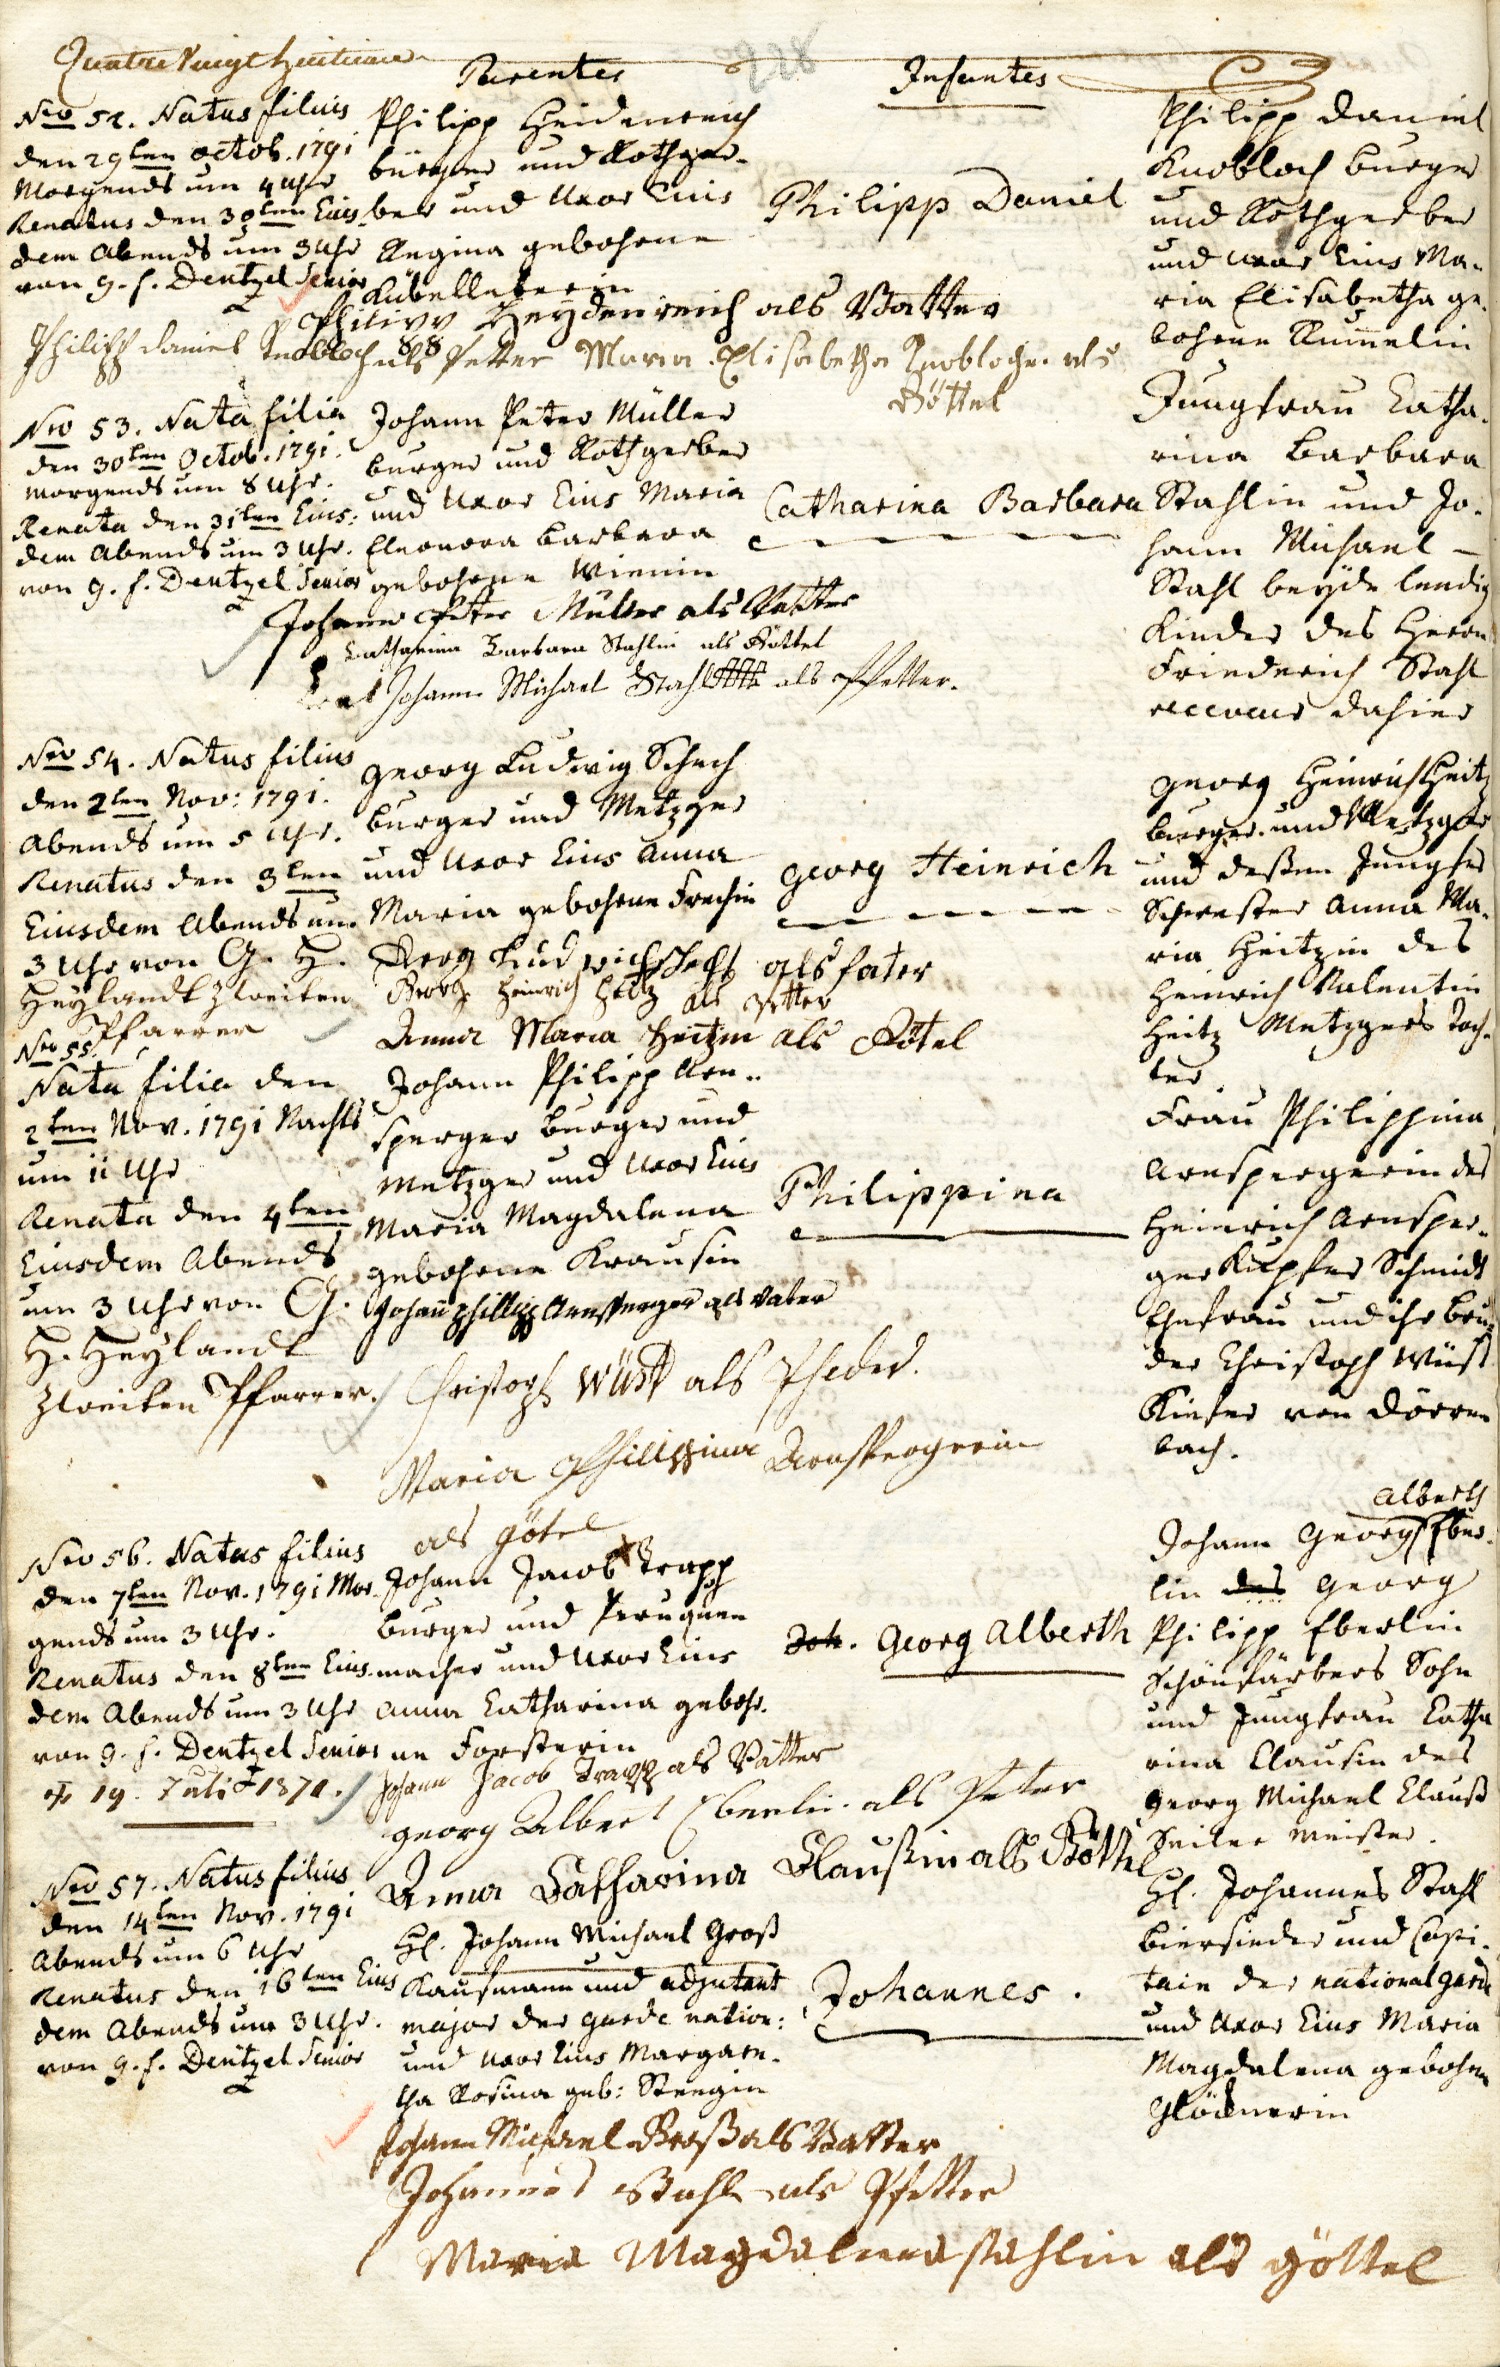 Quatre Vingt huitieme
228
Parentes
Infantes
Nro 52. Natus filius
den 29ten octob. 1791
Morgends um 4 Uhr
Renatus den 30ten Eius-
dem Abends um 3 Uhr
von g. f. Dentzel Senior
Philipp Heidenreich
bürger und Rothger-
ber und Uxor Eius
Regina gebohrne
Kübelleberin
Philipp Daniel
Philipp Daniel
Knobloch burger
und Rothgerber
und Uxor Eius Ma-
ria Elisabetha ge-
bohrne Kummelin
Philipp Heydenreich als Vatter
Philipp Daniel Knobloch als Petter Maria Elisabetha Knoblochin als
Göttel
88
Nro 53. Nata filia
den 30ten Octob. 1791.
morgends um 8 Uhr.
Renata den 31ten Eius-
dem Abends um 3 Uhr.
von g. f. Dentzel Senior
Johann Peter Müller
burger und Rothgerber
und Uxor Eius Maria
Eleonora Barbara
gebohrne Wienin
Catharina Barbara
Jungfrau Catha-
rina Barbara
Stahlin und Jo-
hann Michael
Stahl beyde lendig
Kinder des Herrn
Friederich Stahl
receveur dahier
Johann Peter Müller als Vatter
Catharina Barbara Stahlin als Göttel
Johann Michael Stahl als Pfetter.
Nro 54. Natus filius
den 2ten Nov: 1791.
Abends um 5 Uhr.
Renatus den 3ten
Eiusdem Abends um
3 Uhr von G. H.
Heylandt zweiten
Pfarrer
Georg Ludwig Schech
burger und Metzger
und Uxor Eius Anna
Maria gebohrne Frechin
georg Heinrich
Georg Heinrich Heitz
burger und Metzger
und deßen Jungfer
Schwester Anna Ma-
ria Heitzin des
Heinrich Valentin
Heitz Metzgers Toch-
ter.
Georg Ludwich Schech als fater
Georg Heinrich Heitz als Petter
Anna Maria Heitzin als Götel
Nro 55.
Nata filia den
2ten Nov. 1791 Nachts
um 11 Uhr
Renata den 4ten
Eiusdem Abends
um 3 Uhr von G.
H. Heylandt
zweiten Pfarrer.
Johann Philipp Arn-
sperger burger und
Metzger und Uxor Eius
Maria Magdalena
gebohrne Krausin
Philippina
Frau Philippina
Arnspergerin des
Heinrich Arnsper-
ger Kupfer Schmidt
Ehefrau und ihr Bru-
der Christoph Wüst
Kiefer von Dörren
bach.
Johann Phillipp Arnsperger als Vater
Christoph Wüst als Pheder.
Maria Philippina Arnspergerin
als götel
Nro 56. Natus filius
den 7ten Nov. 1791 Mor-
gends um 3 Uhr.
Renatus den 8ten Eius-
dem Abends um 3 Uhr
von g. f. Dentzel Senior
19. Juli 1871.
Johann Jacob Trapp
burger und Peruquen
macher und Uxor Eius
Anna Catharina gebohr-
ne Forsterin
Joh. Georg Alberth
Alberth
Johann Georg Eber-
lin des Georg
Philipp Eberlin
Schönfärbers Sohn
und Jungfrau Catha
rina Clausin des
Georg Michael Clauß
Seiler Meister.
Johann Jacob Trapp als Vatter
georg Albert Eberlin als Peter
Anna Catharina Claußin als Göthel
Nro 57. Natus filius
den 14ten Nov. 1791
Abends um 6 Uhr
Renatus den 16ten Eius
dem Abends um 3 Uhr.
von g. f. Dentzel Senior
H. Johann Michael Groß
Kaufmann und adjutant
major der garde nation:
und Uxor Eius Margare-
tha Rosina geb: Steegin
Johannes.
H. Johannes Stahl
biersieder und Capi-
tain der national garde
und Uxor Eius Maria
Magdalena gebohrne
Glöcknerin
Johann Michael Groß als Vatter
Johannes Stahl als Pfetter
Maria Magdalena stahlin als göttel